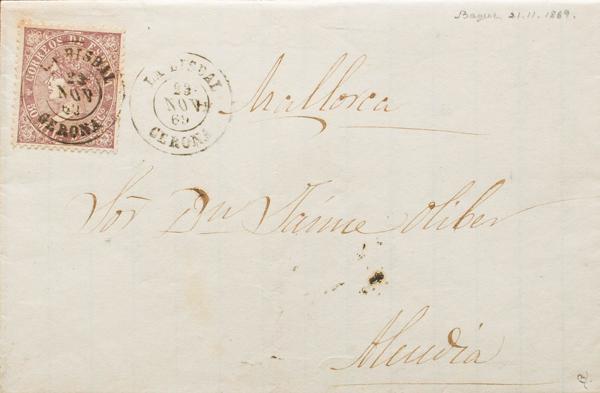 Bagur 21.11.1869.
CORREOS DE
50
LA BISBAL
23
NOV
69
GERONA
LA BISBAL
23
NOV
69
GERONA
Mallorca
Sor Dn Jaime Oliber
Alcudia